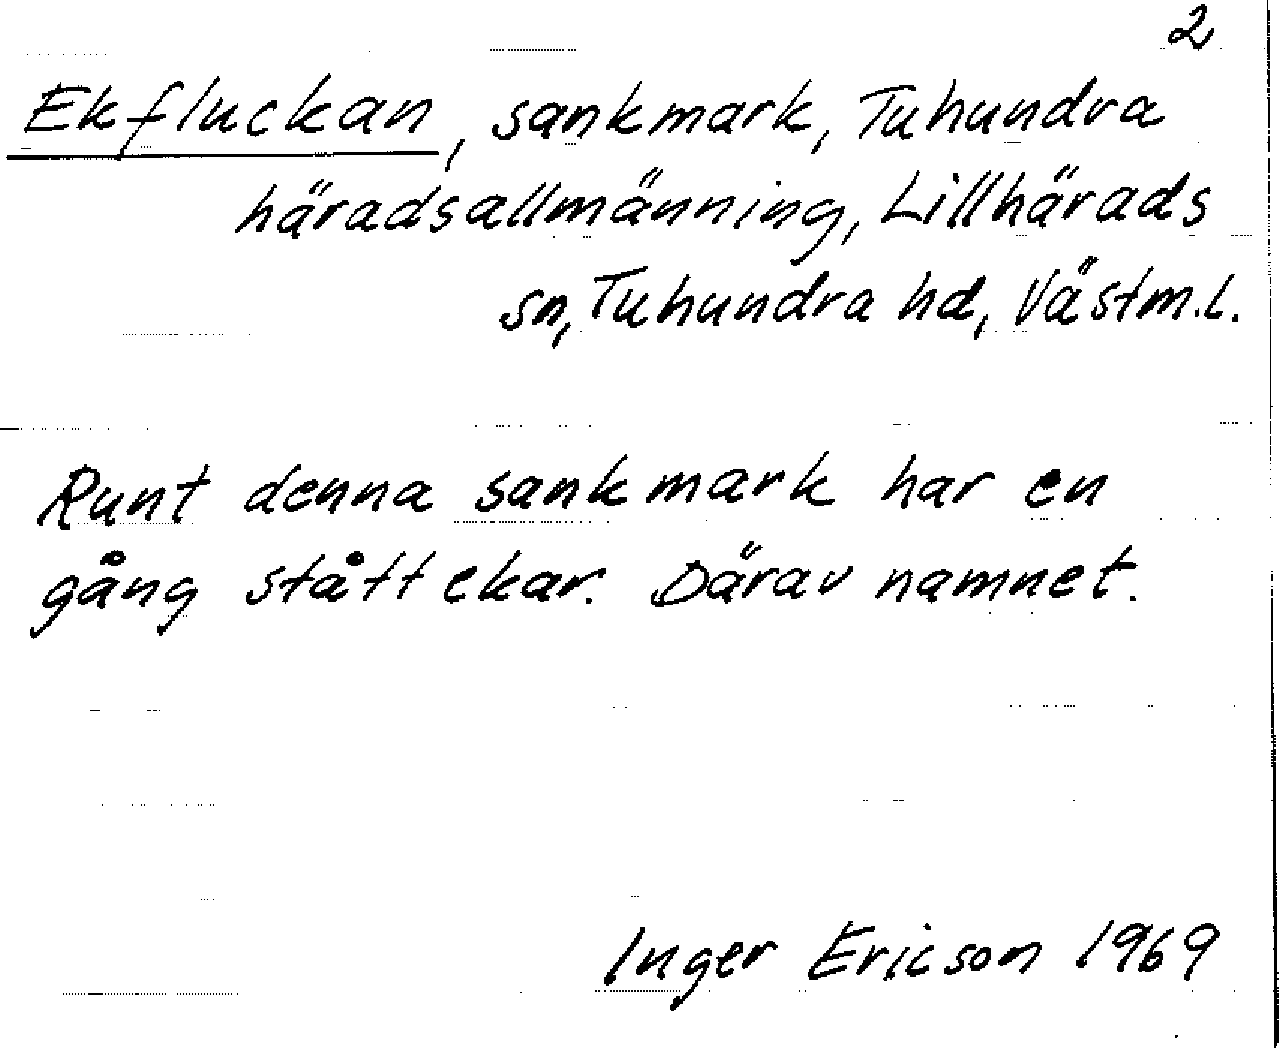 2
Ekfluckan, sankmark, Tuhundra
häradsallmänning, Lillhärads
sn, Tuhundra hd, Västm.l.
Runt denna sankmark har en
gång stått ekar. Därav namnet.
Inger Ericson 1969